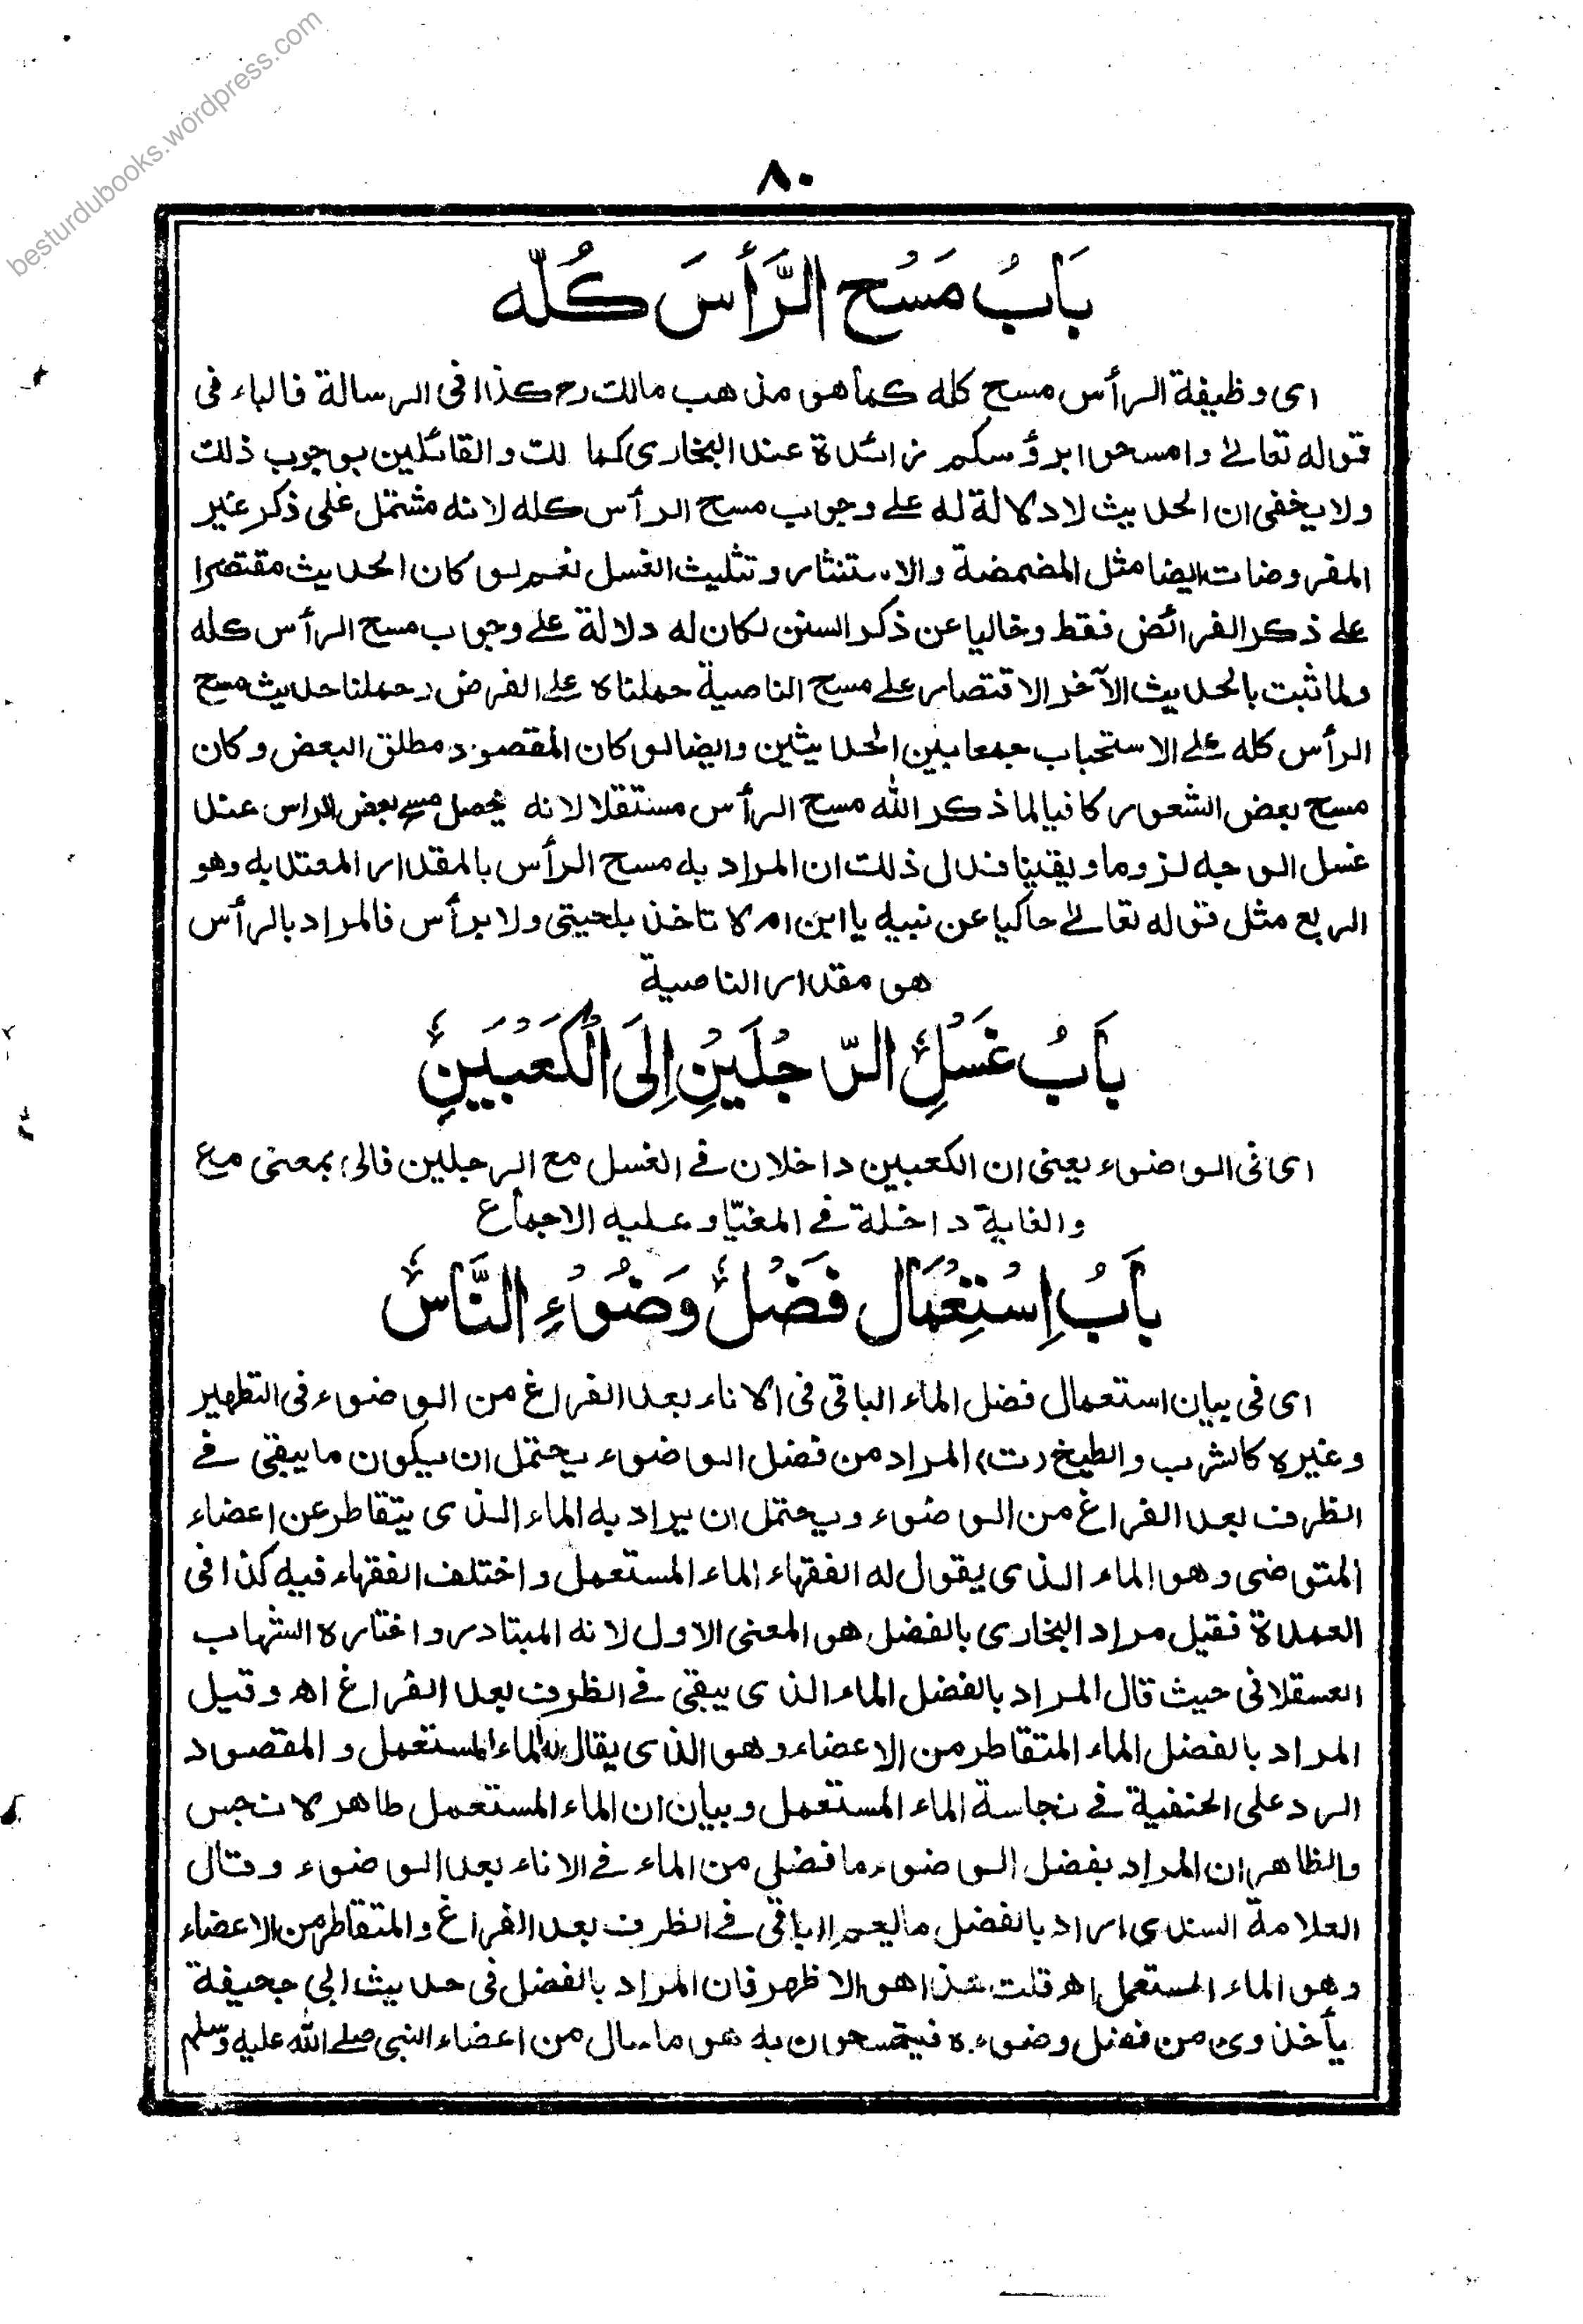 besturdubooks.wordpress.com
٨٠
بَابُ مَسْحِ الرَّأْسِ كُلِّه
اى وظيفة الرأس مسح كله كما هو مذهب مالك رح كذا فى الرسالة فالباء فى
قوله تعالى وامسحوا برؤسكم زائدة عند البخارى كما لك والقائلين بوجوب ذلك
ولا يخفى ان الحديث لا دلالة له على وجوب مسح الرأس كله لانه مشتمل على ذكر غير
المفروضات ايضا مثل المضمضة والاستنثار وتثليث الغسل نعم لو كان الحديث مقتصرا
على ذكر الفرائض فقط وخاليا عن ذكر السنن لكان له دلالة على وجوب مسح الرأس كله
ولما ثبت بالحديث الآخر الاقتصار على مسح الناصية حملناه على الفرض وحملنا حديث مسح
الرأس كله على الاستحباب جمعا بين الحديثين وايضا لو كان المقصود مطلق البعض وكان
مسح بعض الشعور كافيا لما ذكر الله مسح الرأس مستقلا لانه يحصل مسح بعض الراس عند
غسل الوجه لزوما ويقينا فدل ذلك ان المراد به مسح الرأس بالمقدار المعتد به وهو
الربع مثل قوله تعالى حاكيا عن نبيه يا ابن ام لا تاخذ بلحيتى ولا برأس فالمراد بالرأس
هو مقدار الناصية
بَابُ غَسْلِ الرِّجْلَيْنِ إِلَى الْكَعْبَيْنِ
اى فى الوضوء يعنى ان الكعبين داخلان فى الغسل مع الرجلين فالى بمعنى مع
والغاية داخلة فى المغيّا وعليه الاجماع
بَابُ اِسْتِعْمَال فَضْلِ وَضُوْءِ النَّاسِ
اى فى بيان استعمال فضل الماء الباقى فى الاناء بعد الفراغ من الوضوء فى التطهير
وغيره كالشرب والطبخ (ت) المراد من فضل الوضوء يحتمل ان يكون ما يبقى فى
الظرف بعد الفراغ من الوضوء ويحتمل ان يراد به الماء الذى يتقاطر عن اعضاء
المتوضى وهو الماء الذى يقول له الفقهاء الماء المستعمل واختلف الفقهاء فيه كذا فى
العمدة فقيل مراد البخارى بالفضل هو المعنى الاول لانه المبتادر واختاره الشهاب
العسقلانى حيث قال المراد بالفضل الماء الذى يبقى فى الظرف بعد الفراغ اھ وقيل
المراد بالفضل الماء المتقاطر من الاعضاء وهو الذى يقال له الماء المستعمل والمقصود
الرد على الحنفية فى نجاسة الماء المستعمل وبيان ان الماء المستعمل طاهر لا نجس
والظاهر ان المراد بفضل الوضوء ما فضل من الماء فى الاناء بعد الوضوء وقال
العلامة السندى اراد بالفضل ما يعم الباقى فى الظرف بعد الفراغ والمتقاطر من الاعضاء
وهو الماء المستعمل اھ قلت هذا هو الاظهر فان المراد بالفضل فى حديث ابى جحيفة
يأخذون من فضل وضوءه فيتمسحون به هو ما سال من اعضاء النبى صلى الله عليه وسلم